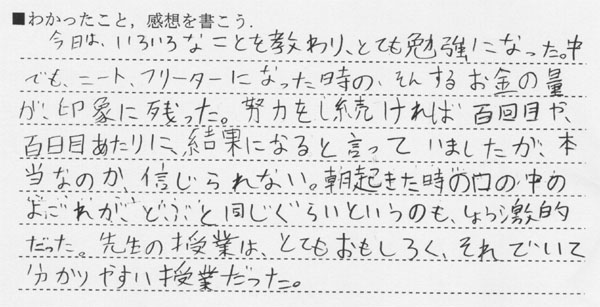 ■わかったこと，感想を書こう．
今日は、いろいろなことを教わり、とても勉強になった。中
でも、ニート、フリーターになった時の、そんするお金の量
が、印象に残った。努力をし続ければ百回目や、
百日目あたりに、結果になると言っていましたが、本
当なのか、信じられない。朝起きた時の口の中の
よごれが、どぶと同じぐらいというのも、しょう激的
だった。先生の授業は、とてもおもしろく、それでいて
分かりやすい授業だった。